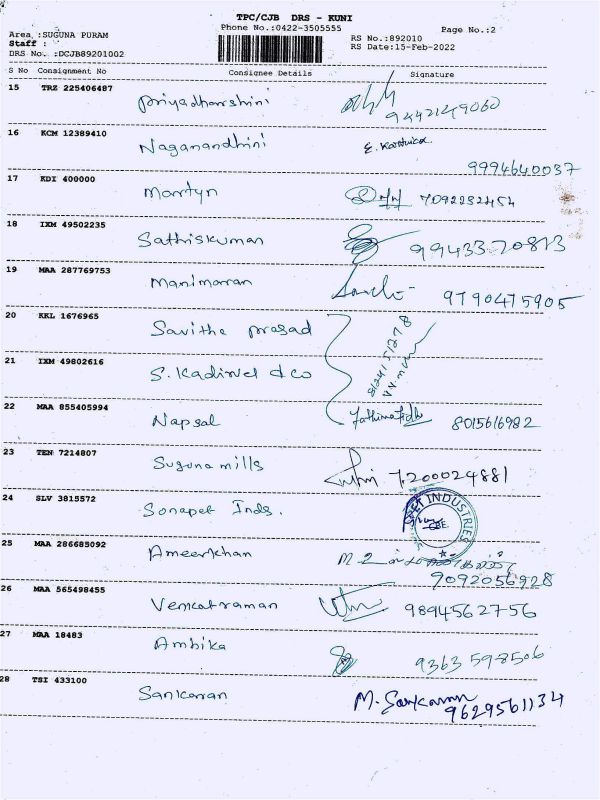 TPC/CJB DRS - KUNI
Phone No.:0422-3505555
Page No.:2
Area :SUGUNA PURAM
RS No.:892010
Staff :
RS Date:15-Feb-2022
DRS No. :DCJB89201002
S No Consignment No Consignee Details Signature
15 TRZ 225406487 Priyadharshini 9442149060
16 KCM 12389410 Naganandhini E. Karthika 9994640037
17 KDI 400000 Martyn 7092232454
18 IXM 49502235 Sathiskumar 9943320813
19 MAA 287769753 Manimaran 9790475905
20 KKL 1676965 Savitha prasad
21 IXM 49802616 S. Kadirvel & co
22 MAA 855405994 Napsal 8015616982
23 TEN 7214807 Suguna mills 7200024881
24 SLV 3815572 Sonapet Inds. INDUSTRIES CBE
25 MAA 286685092 Ameerkhan 9092056928
26 MAA 565498455 Venkatraman 9894562756
27 MAA 18483 Ambika 9363598506
28 TSI 433100 Sankaran M. Sankaran 9629561134